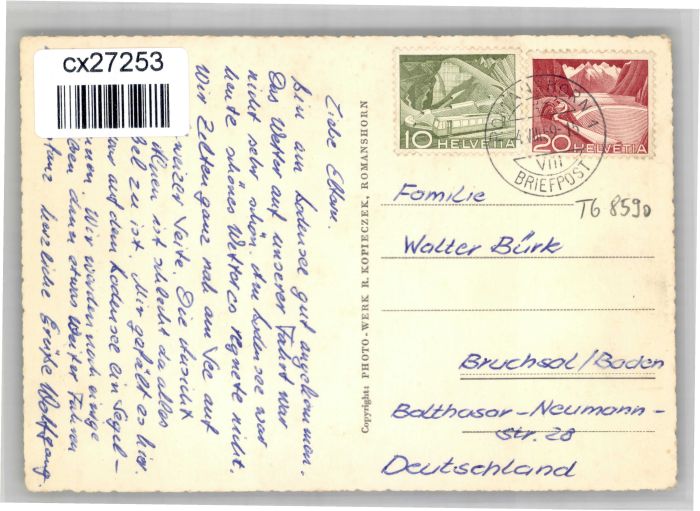 cx27253
Liebe Eltern.
bin am Bodensee gut angekommen.
Das Wetter auf unserer Fahrt war
nicht sehr schön. Am Bodensee war
heute schönes Wetter es regnete nicht.
Wir Zelten ganz nah am See auf
weizer Seite. Die Aussicht
ist schlecht da alles
zu ist. Mir gefält es hier.
auf dem Bodensee ein Segel-
Wir werden noch einige
dann etwas weiter Fahren
herzliche Grüße Wolfgang.
Copyright: PHOTO-WERK R. KOPIECZEK, ROMANSHORN
10 HELVETIA
20 HELVETIA
ROMANSHORN 1
VIII
BRIEFPOST
TG 8590
Familie
Walter Bürk
Bruchsal/Baden
Balthasar-Neumann-
Str. 28
Deutschland